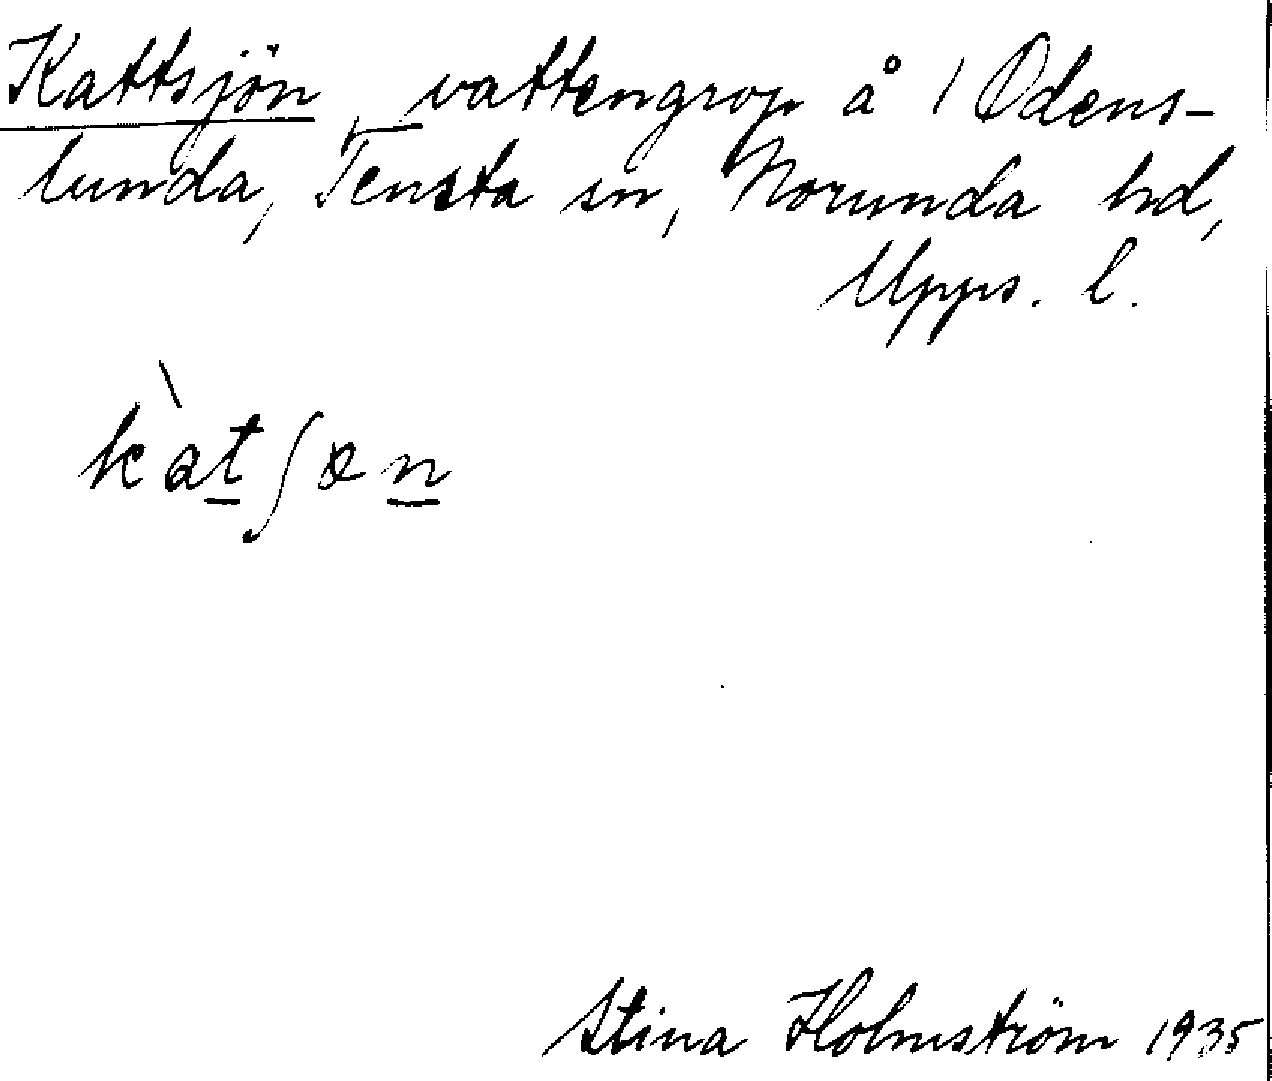 Kattsjön, vattengrop å 1 Odens-
lunda, Tensta sn, Norunda hd,
Upps. l.
kàtʃøn
Stina Holmström 1935